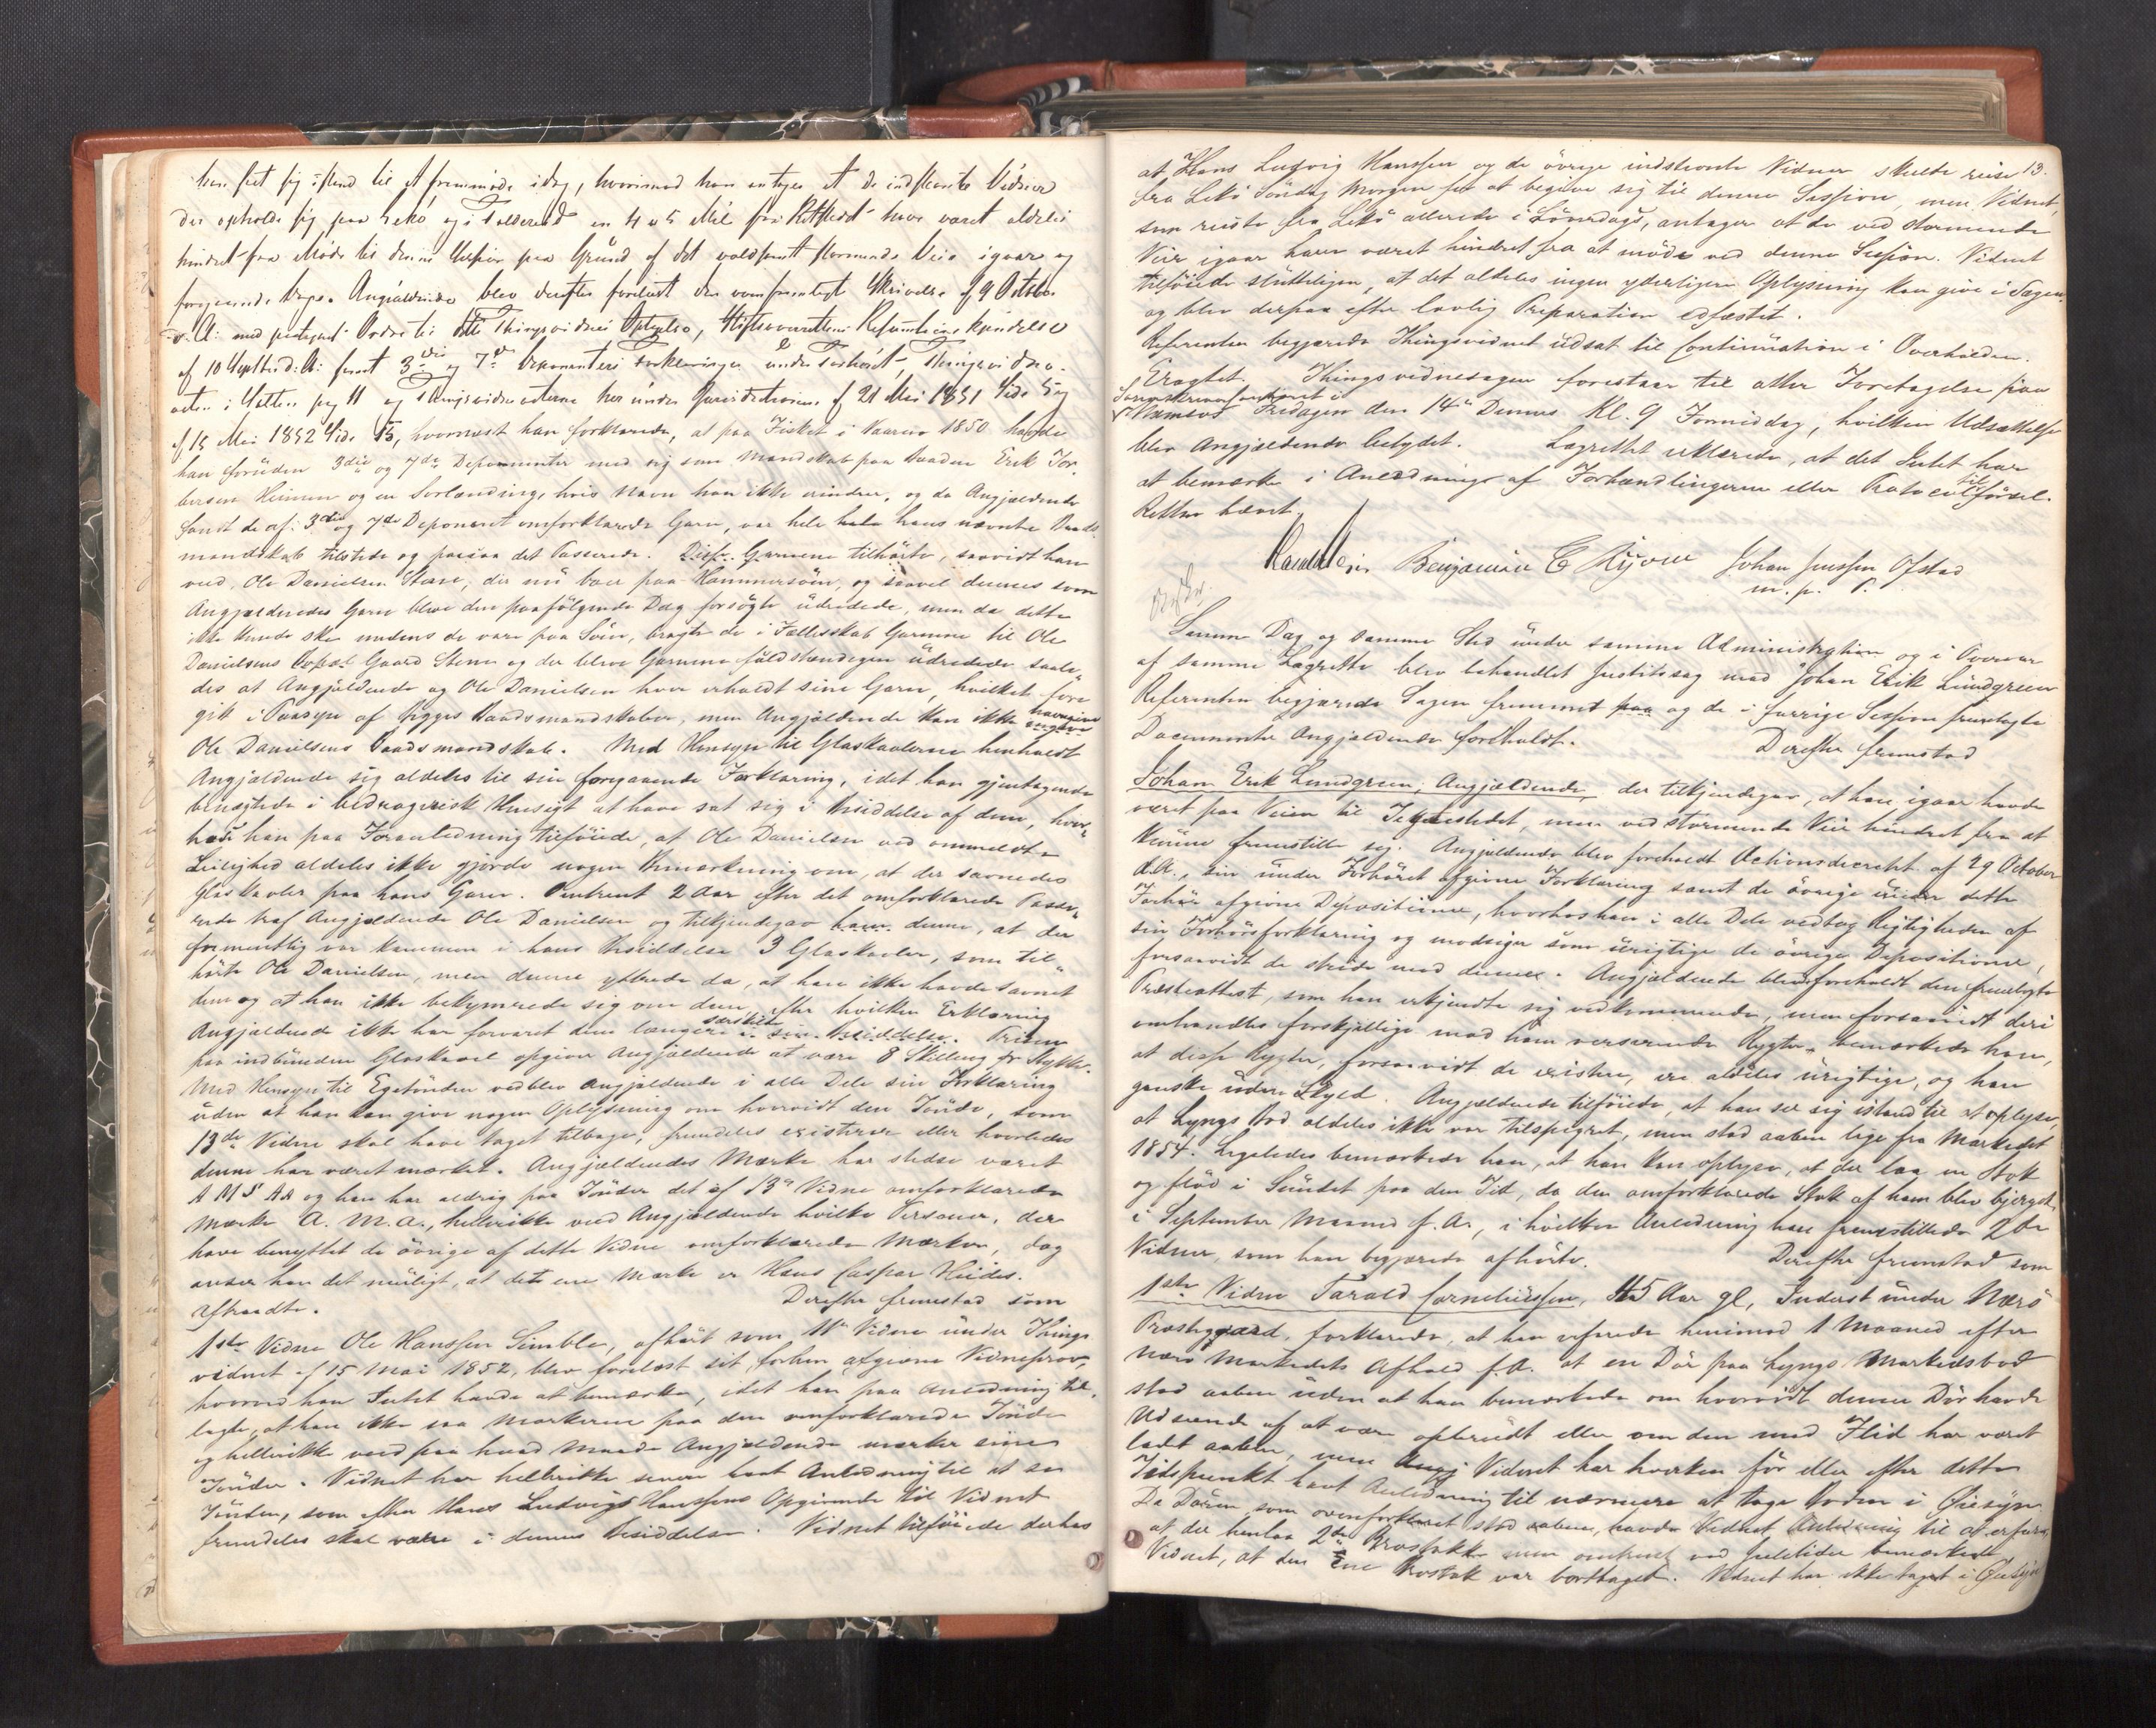 han seet sig istand til at fremmøde idag, hvorimod han antager at de indstævnte Vidner
der opholde sig paa Lekö og i Solderud en 4 a 5 Mil fra Retsted have været aldeles
hindret fra Møde til denne Session paa Grund af det voldsomt stormende Veir igaar og
foregaaende Dage. Angjældende blev derefter forelæst den Skrivelse af 9 October
d. A: med Ordre til dette Thingsvidnes Optagelse, Stiftsoverrettens Kjendelse
af 10 Septbr d. A: samt 3die og 7de Deponenters Forklaringer under Forhøret, Thingsvidne-
acten i pag 11 og Thingsvidneacterne her under Jurisdictionen af 21 Mai 1851 Side 5 og
af 15 Mai 1852 Side 15, hvornæst han forklarede, at paa Fisket i Vaaren 1850 havde
han foruden 3die og 7de Deponenter med sig som Mandskab paa Baaden Erik Tor-
bersen Heimen og en Sorlænding, hvis Navn han ikke erindrer, og da Angjældende
fandt de af 3die og 7de Deponent omforklarede Garn, var hele hans nævnte Baads-
mandskab tilstede og paasaa det Passerede. Disse Garnene tilhørte, saavidt han
veed, Ole Danielsen Stene, der nu boer paa Hammersöen, og saavel dennes som
Angjældendes Garn bleve den paafølgende Dag forsøgte udredede, men da dette
ikke kunde ske medens de vare paa Søen, bragte de i Fællesskab Garnene til Ole
Danielsens Gaard Stene og der bleve Garnene fuldstændigen udredede saale-
des at Angjældende og Ole Danielsen hver erholdt sine Garn, hvilket fore-
gik i Paasyn af begges Baadsmandskaber, men Angjældende kan ikke navngive
Ole Danielsens Baadsmandskab. Med Hensyn til Glaskavlerne henholdt
Angjældende sig aldeles til sin foregaaende Forklaring, idet han gjentagende
benægtede i bedragerisk Hensigt at have sat sig i Besiddelse af dem, hvor-
hos han paa Foranledning tilføiede, at Ole Danielsen ved ommeldte
Leilighed aldeles ikke gjorde nogen Bemærkning om, at der savnedes
Glaskavler paa hans Garn. Omtrent 2 Aar efter det omforklarede Passe-
rede traf Angjældende Ole Danielsen og tilkjendegav denne, at der
formentlig var kommen i hans Besiddelse 3 Glaskavler, som til-
hørte Ole Danielsen, men denne yttrede da, at han ikke havde savnet
dem og at han ikke bekymrede sig om dem, efter hvilken Erklæring
Angjældende ikke har forvaret dem længere særskilt i sin Besiddelse. Prisen
paa indbunden Glaskavl opgiver Angjældende at være 8 Skilling pr Stykke.
Med Hensyn til Egetønden vedblev Angjældende i alle Dele sin Forklaring
uden at han kan give nogen Oplysning om hvorvidt den Tønde, som
13de Vidne skal have taget tilbage, fremdeles existerer eller hvorledes
denne har været mærket. Angjældendes Mærke har stedse været
A M S A A og han har aldrig paa Tønder det af 13de Vidne omforklarede
Mærke A. M. A., hellerikke veed Angjældende hvilke Personer, der
have benyttet de øvrige af dette Vidne omforklarede Mærker, dog
anser han det muligt, at det ene Mærke er Hans Caspar Heides.
Aftraadte. Derefter fremstod som
1ste Vidne Ole Hanssen Simble, afhørt som 11te Vidne under Things-
vidnet af 15 Mai 1852, blev forelæst sit forhen afgivne Vidneprov,
hvorved han Intet havde at bemærke, idet han paa Anledning til-
lagde, at han ikke saa Mærkerne paa den omforklarede Tønde
og hellerikke veed paa hvad Maade Angjældende mærker sine
Tønder. Vidnet har hellerikke senere havt Anledning til at see
Tønden, som efter Hans Ludvigs Hanssens Opgivende til Vidnet
fremdeles skal være i dennes Besiddelse. Vidnet tilføiede derhos
13.
at Hans Ludvig Hanssen og de övrige indstevnte Vidner skulde reise
fra Lekö Söndag Morgen for at begive sig til denne Session, men Vidnet,
som reiste fra Lekö allerede i Löverdags, antager at de ved stormende
Veir igaar have været hindret fra at möde ved denne Session. Vidnet
tilføiede sluttelgen, at det aldeles ingen yderligere Oplysning kan give i Sagen,
og blev derpaa efter lovlig Præparation edfæstet.
Referenten begjærede Thingsvidnet udsat til Continuation i Overhalden.
Eragtet. Thingsvidnesagen forestaar til atter Foretagelse paa
Namsos Fredagen den 14de Dennes Kl. 9 Formiddag, hvilken Udsættelse
blev Angjældende betydet. Lagrettet erklærede, at det Intet har
at bemærke i Anledning af Forhandlingerne eller Protocoltilførsel.
Retten hævet.
Benjamin E Kijone Johan Jenssen Ofstad
m. p. P.
Samme Dag og samme Sted under samme Administration og i Overvær
af samme Lagrette blev behandlet Justitssag mod Johan Erik Lundgreen
Referenten begjærede Sagen fremmet og de i forrige Session fremlagte
Documenter Angjældende foreholdt. Derefter fremstod
Johan Erik Lundgreen, Angjældende, der tilkjendegav, at han igaar havde
været paa Veien til Tægtestedet, men ved stormende Veir hindret fra at
kunne fremstille sig. Angjældende blev foreholdt Actionsdecretet af 29 October
d. A., sin under Forhöret afgivne Forklaring samt de övrige under dette
Forhör afgivne Depositioner, hvorhos han i alle Dele vedtog Rigtigheden af
sin Forhörsforklaring og modsiger som urigtige de övrige Depositioner,
forsaavidt de stride mod denne. Angjældende blev foreholdt den fremlagte
Præsteattest, som han erkjendte sig vedkommende, men forsaavidt deri
omhandles forskjellige mod ham verserende Rygter, bemærkede han,
at disse Rygter, forsaavidt de existere, ere aldeles urigtige, og han
ganske uden Skyld. Angjældende tilföiede, at han seer sig istand til at oplyse,
at Lyngs Bod aldeles ikke var tilspigret, men stod aaben lige fra Markedet
1854. Ligeledes bemærkede han, at han kan oplyse, at der laa en Stok
og flöd i Sundet paa den Tid, da den omforklarede Stok af ham blev bjerget
i September Maaned f. A., i hvilken Anledning han fremstillede 2de
Vidner, som han begjærede afhörte. Derefter fremstod som
1ste Vidne Tarald Corneliussen, 45 Aar gl, Inderst under Nærö
Præstegaard, forklarede, at han erfarede henimod 1 Maaned efter
Nærö Markedets Afhold f. A. at en Dör paa Lyngs Markedsbod
stod aaben uden at han bemærkede om hvorvidt denne Dör havde
Udseende af at være opbrudt eller om den med Flid har været
ladt aaben, men Vidnet har hverken för eller efter dette
Tidspunkt havt Anledning til nærmere at tage Boden i Öiesyn.
Da Dören som ovenforklaret stod aaben, havde Vidnet Anledning til at erfare,
at der henlaa 2de men omtrent ved Juletider bemærkede
Vidnet, at den Ene var borttaget. Vidnet har ikke taget i Öiesyn